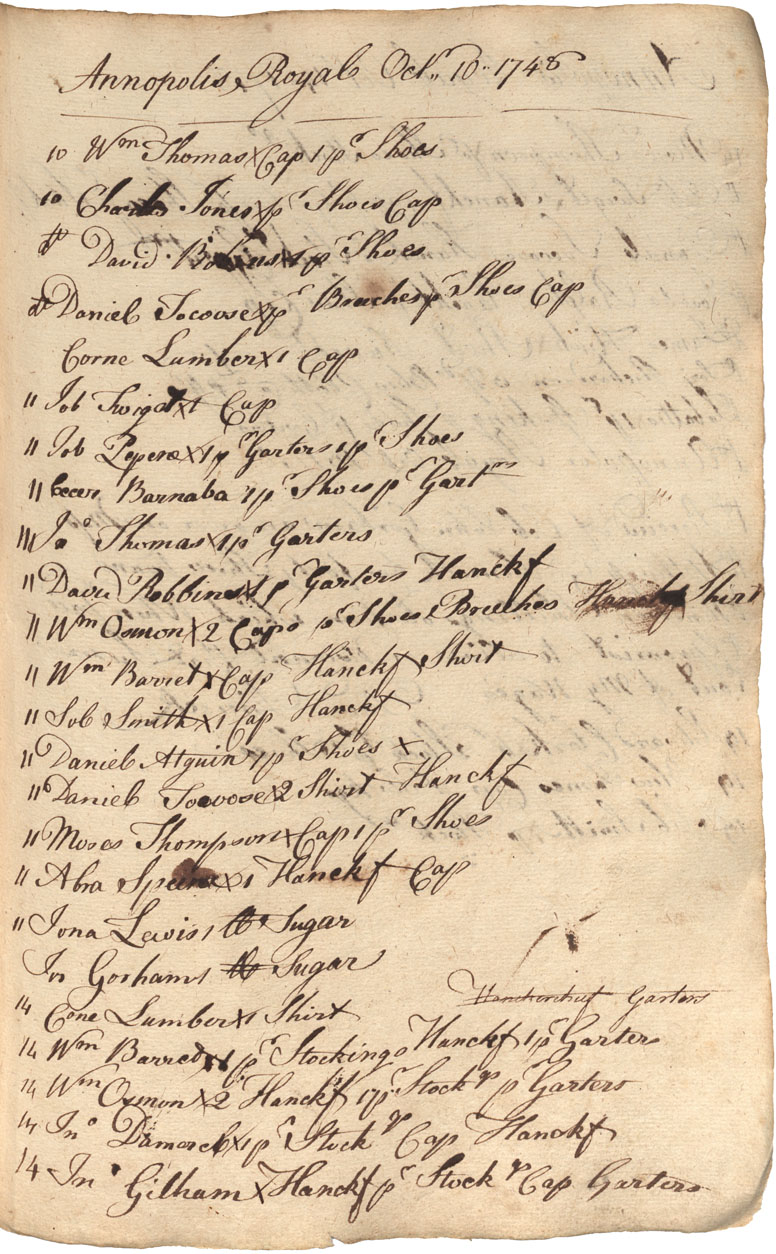 Annopolis Royal Octr. 10. 1748
10 Wm Thomas x Cap 1 pr Shoes
10 Charles Jones x pr Shoes Cap
do David x 1 pr Shoes
do Daniel Tocoose x pr Breeches pr Shoes Cap
Corne Lumber x 1 Cap
11 Job x 1 Cap
11 Job Pepere x 1 pr Garters 1 pr Shoes
11 Barnaba 1 pr Shoes pr Gartrs
11 Jo Thomas x 1 pr Garters
11 David Robbins x 1 pr Garters Hanckf
11 Wm Osmon x 2 Caps pr Shoes Breeches Hanckf Shirt
11 Wm Barret x Cap Hanckf Shirt
11 Job Smith x 1 Cap Hanckf
11 Daniel Atquin 1 pr Shoes x
11 Daniel Tocoose x 2 Shirt Hanckf
11 Moses Thompson x Cap 1 pr Shoes
11 Abra x 1 Hanckf Cap
11 Jona Lewis 1 lb Sugar
Jn Gorham 1 lb Sugar
Hanckerchief Garters
14 Cone Lumber x 1 Shirt
14 Wm Barret x 1 pr Stockings Hanckf 1 pr Garter
14 Wm Osmon x 2 Hanckf 1 pr Stockgs pr Garters
14 Jno Damorel x 1 pr Stockgs Cap Hanckf
14 Jn Gilham x Hanckf pr Stockgs Cap Garters